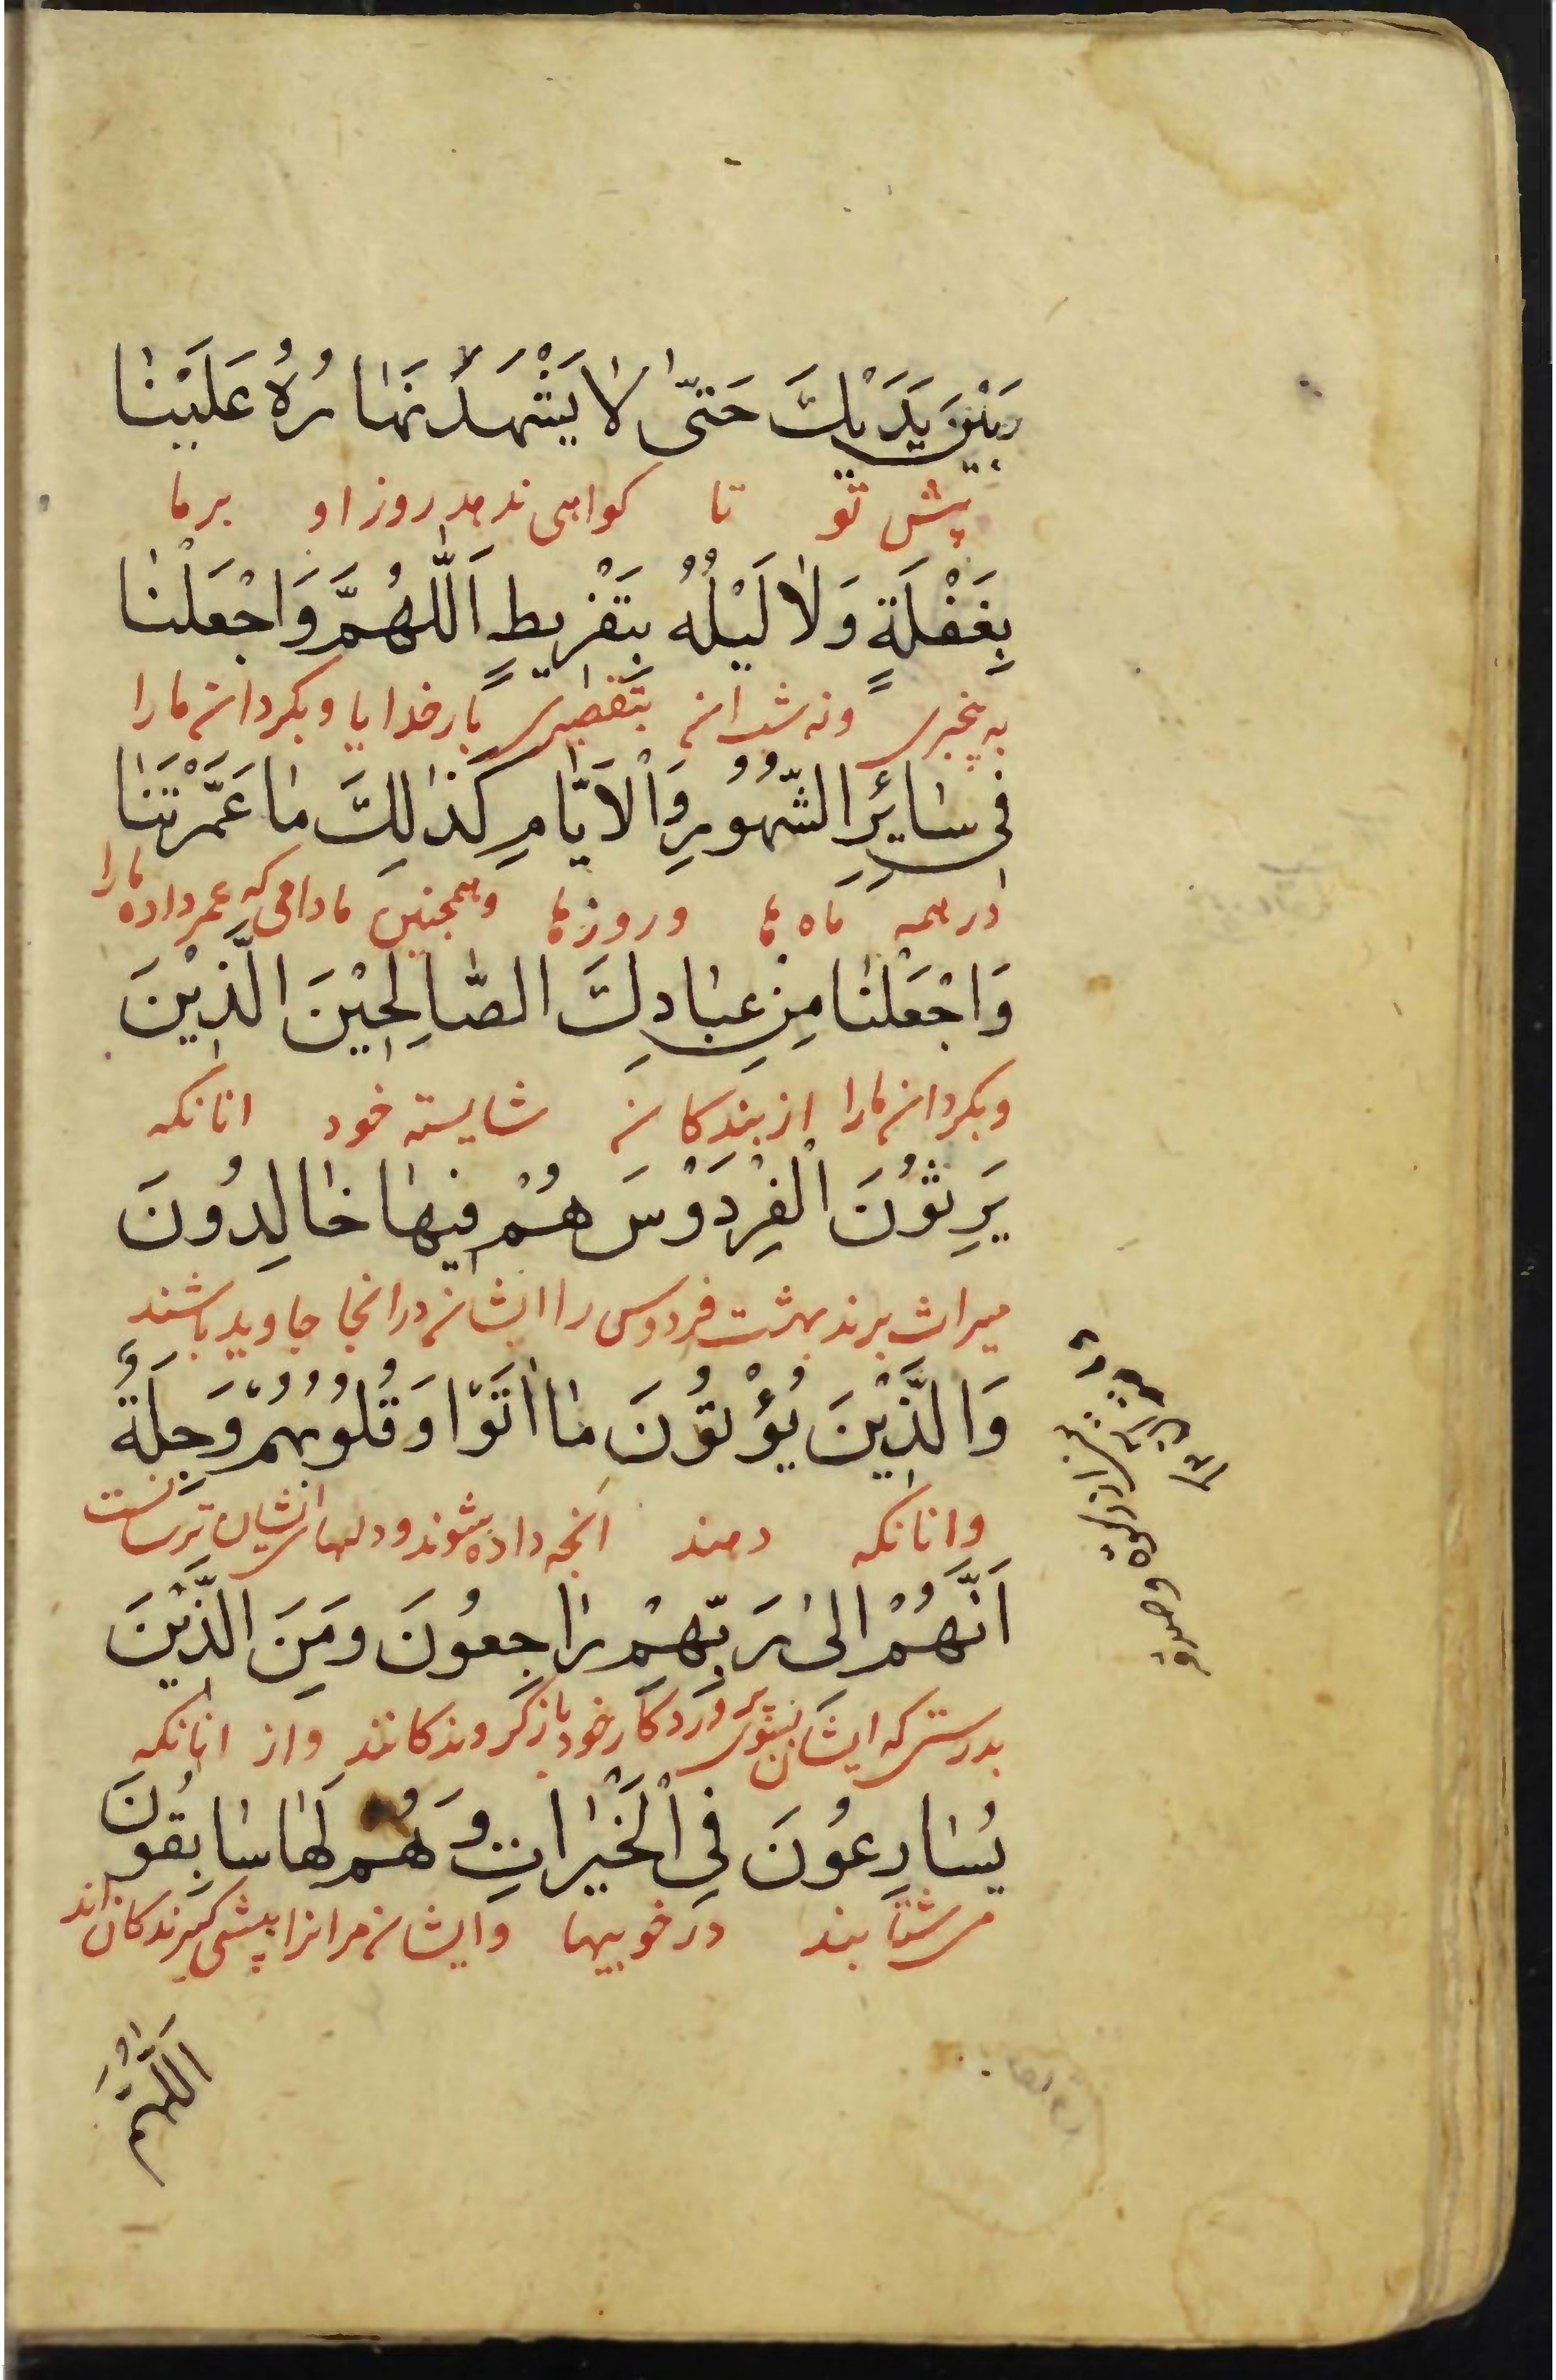 بَيْنَ يَدَيْكَ حَتّىٰ لاٰ يَشْهَدَ نَهٰارُهُ عَلَيْنٰا
پیش تو تا کواهی ندهد روز او بر ما
بِغَفْلَةٍ وَلاٰ لَيْلُهُ بِتَفْرِيطٍ اَللّٰهُمَّ وَاجْعَلْنٰا
به بیخبری و نه شب ان بتقصیری بار خدایا و بکردان ما را
فِي سٰائِرِ الشُّهُورِ وَالْاَيّٰامِ كَذٰلِكَ مٰا عَمَّرْتَنٰا
در همه ماه ها و روز ها و همچنین مادامی که عمر داده ما را
وَاجْعَلْنٰا مِنْ عِبٰادِكَ الصّٰالِحِيْنَ الَّذِيْنَ
و بکردان ما را از بندکان شایسته خود انانکه
يَرِثُونَ الْفِرْدَوْسَ هُمْ فِيهٰا خٰالِدُونَ
میراث برند بهشت فردوس را ایشان در انجا جاوید باشند
وَالَّذِيْنَ يُؤْتُونَ مٰا اٰتَوْا وَقُلُوبُهُمْ وَجِلَةٌ
و انانکه دهند انچه داده شوند و دلهای ایشان ترسانست
اَنَّهُمْ اِلىٰ رَبِّهِمْ رٰاجِعُونَ وَمِنَ الَّذِيْنَ
بدرستی که ایشان بسوی پروردکار خود باز کروندکانند و از انانکه
يُسٰارِعُونَ فِي الْخَيْرٰاتِ وَهُمْ لَهٰا سٰابِقُونَ
می شتابند در خوبیها و ایشان مر انرا پیشی کیرندکان اند
از زکوة و صدقه
اَللّٰهُمَّ